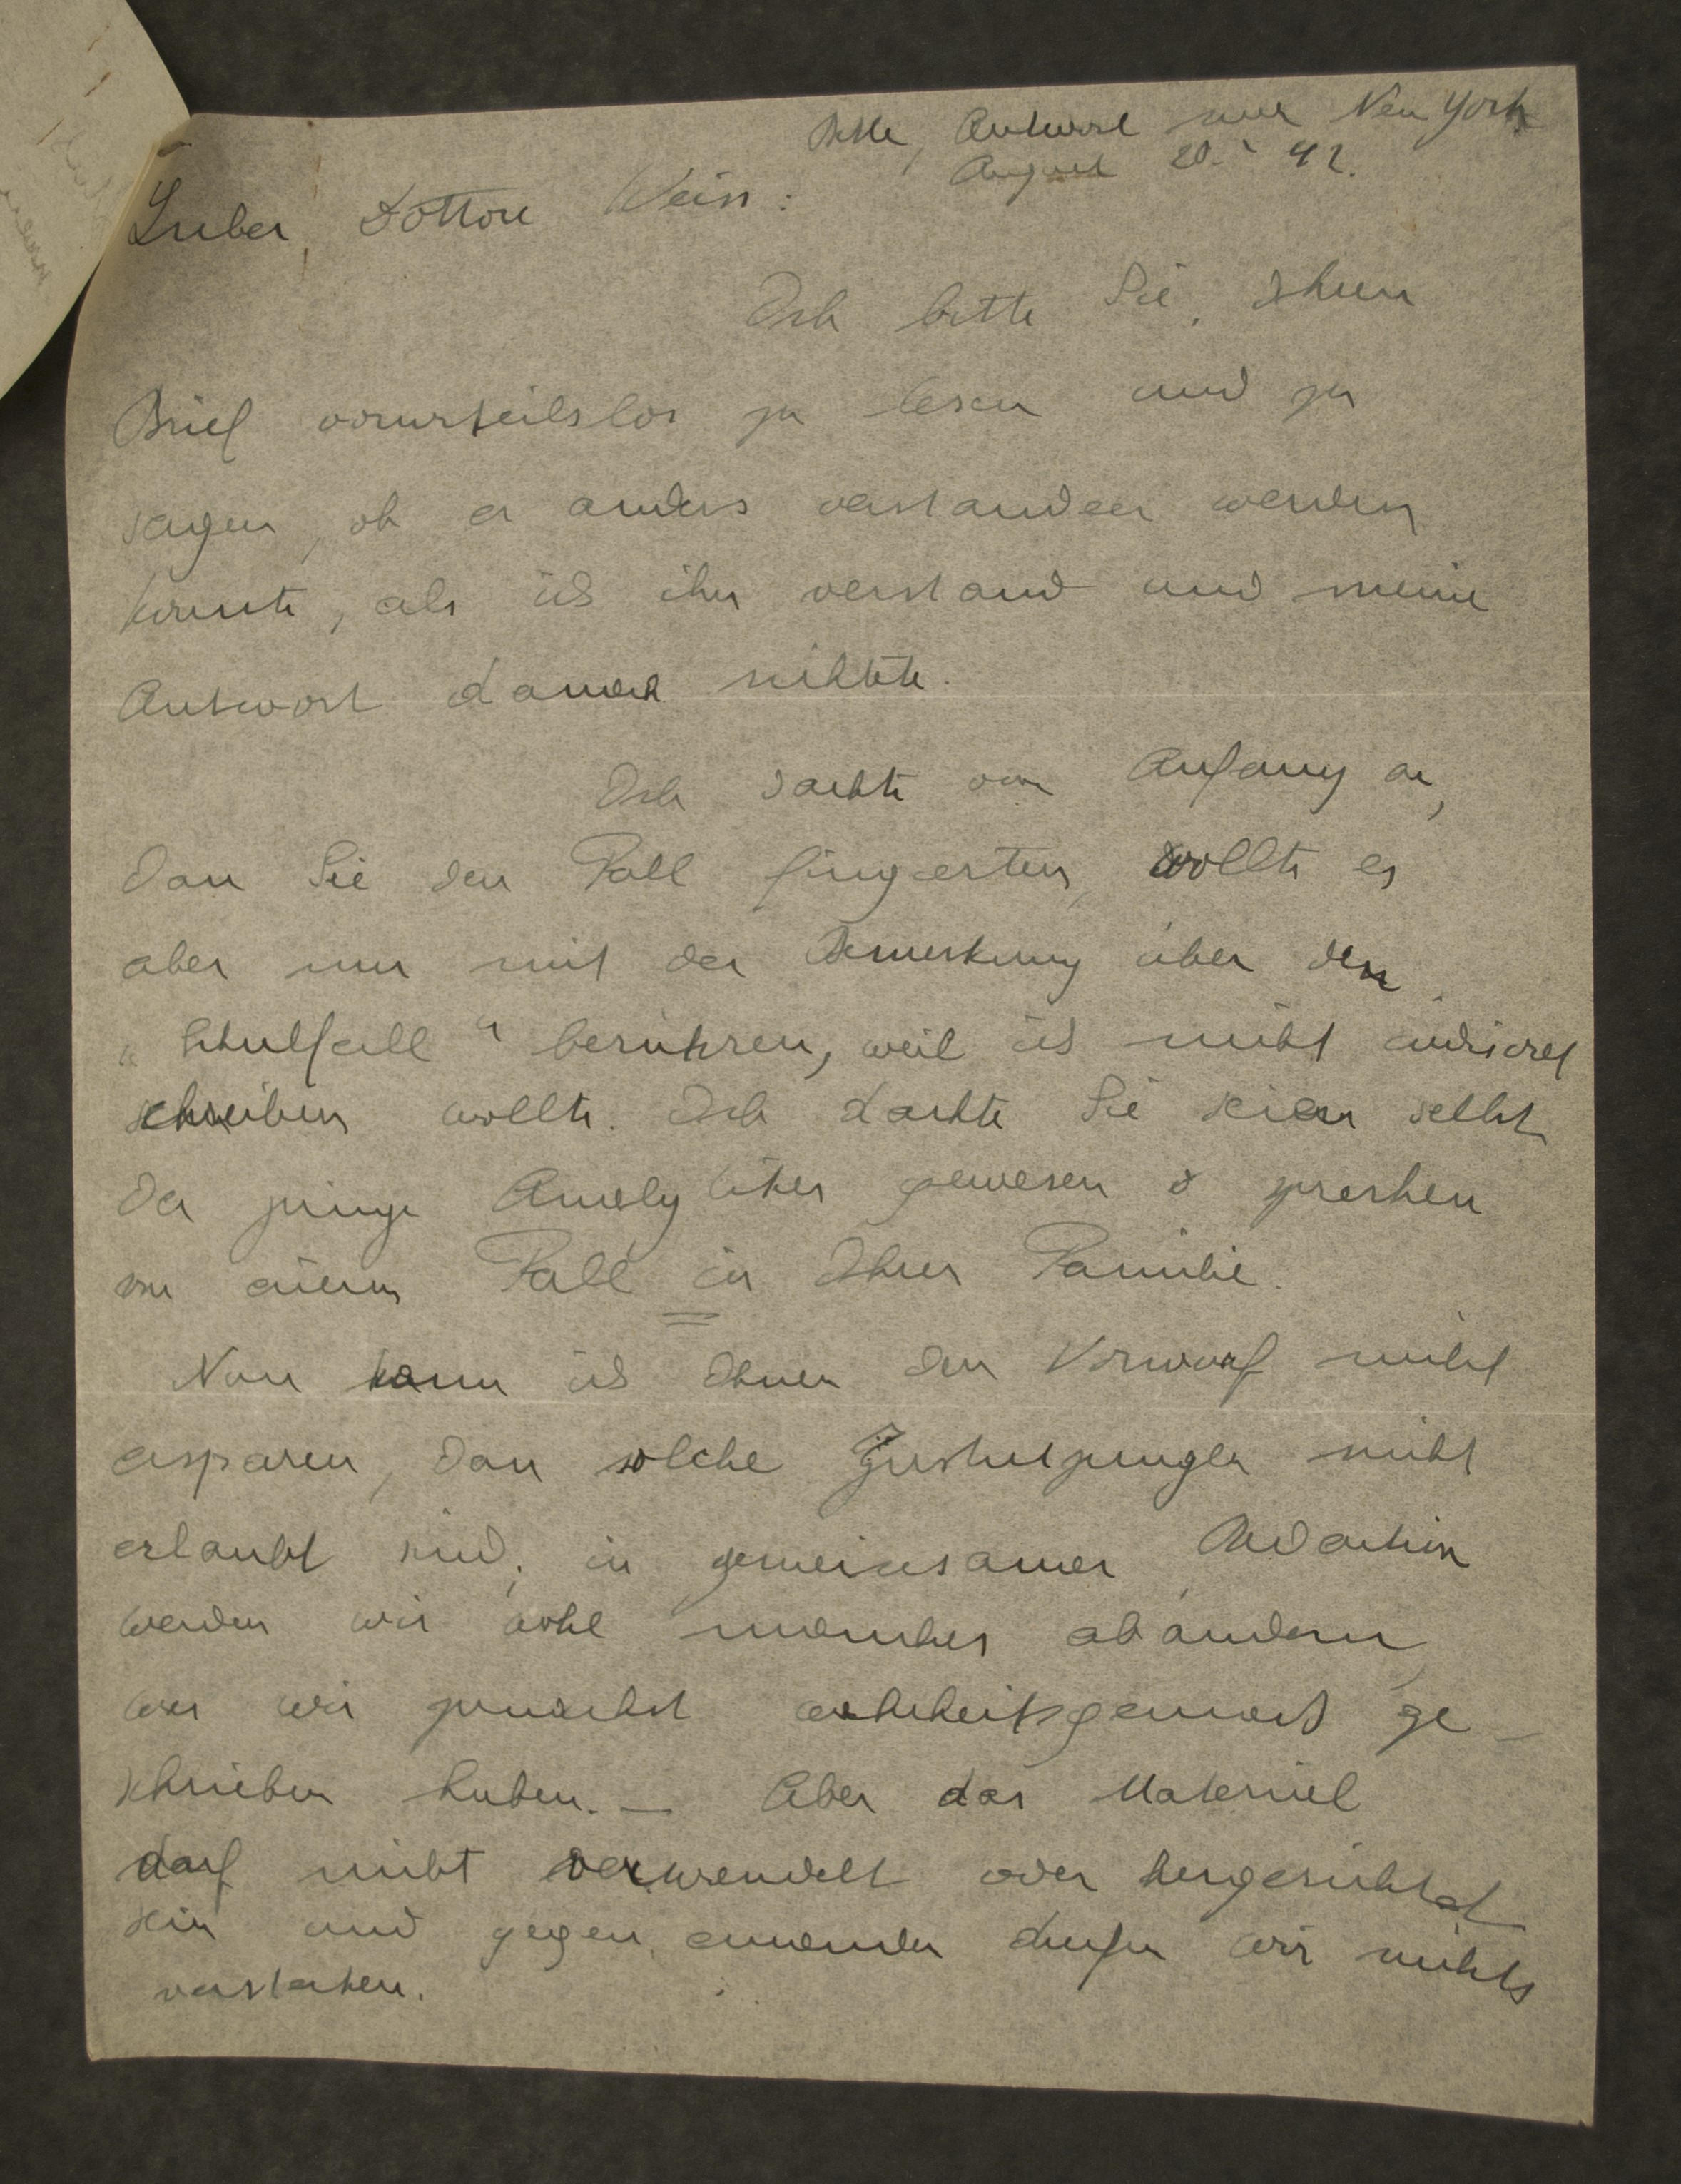 Bitte, Antwort nur New York
August 20. 42.
Lieber Dottore Weiss:
Ich bitte Sie, Ihren
Brief vorurteilslos zu lesen und zu
sagen, ob er anders verstanden werden
konnte, als ich ihn verstand und meine
Antwort danach richtete.
Ich dachte von Anfang an,
dass Sie den Fall fingierten, wollte es
aber nur mit der Bemerkung über den
„Schulfall" berühren, weil ich nicht indiscret
schreiben wollte. Ich dachte Sie seien selbst
der junge Analytiker gewesen & sprechen
von einem Fall in Ihrer Familie.
Nun kann ich Ihnen den Vorwurf nicht
ersparen, dass solche nicht
erlaubt sind; in gemeinsamer Redaction
werden wir wohl manches abändern,
was wir zunächst wahrheitsgemäss ge-
schrieben haben. — Aber das Material
darf nicht verwendet oder hergerichtet
sein und gegen einander dürfen wir nichts
verstecken.